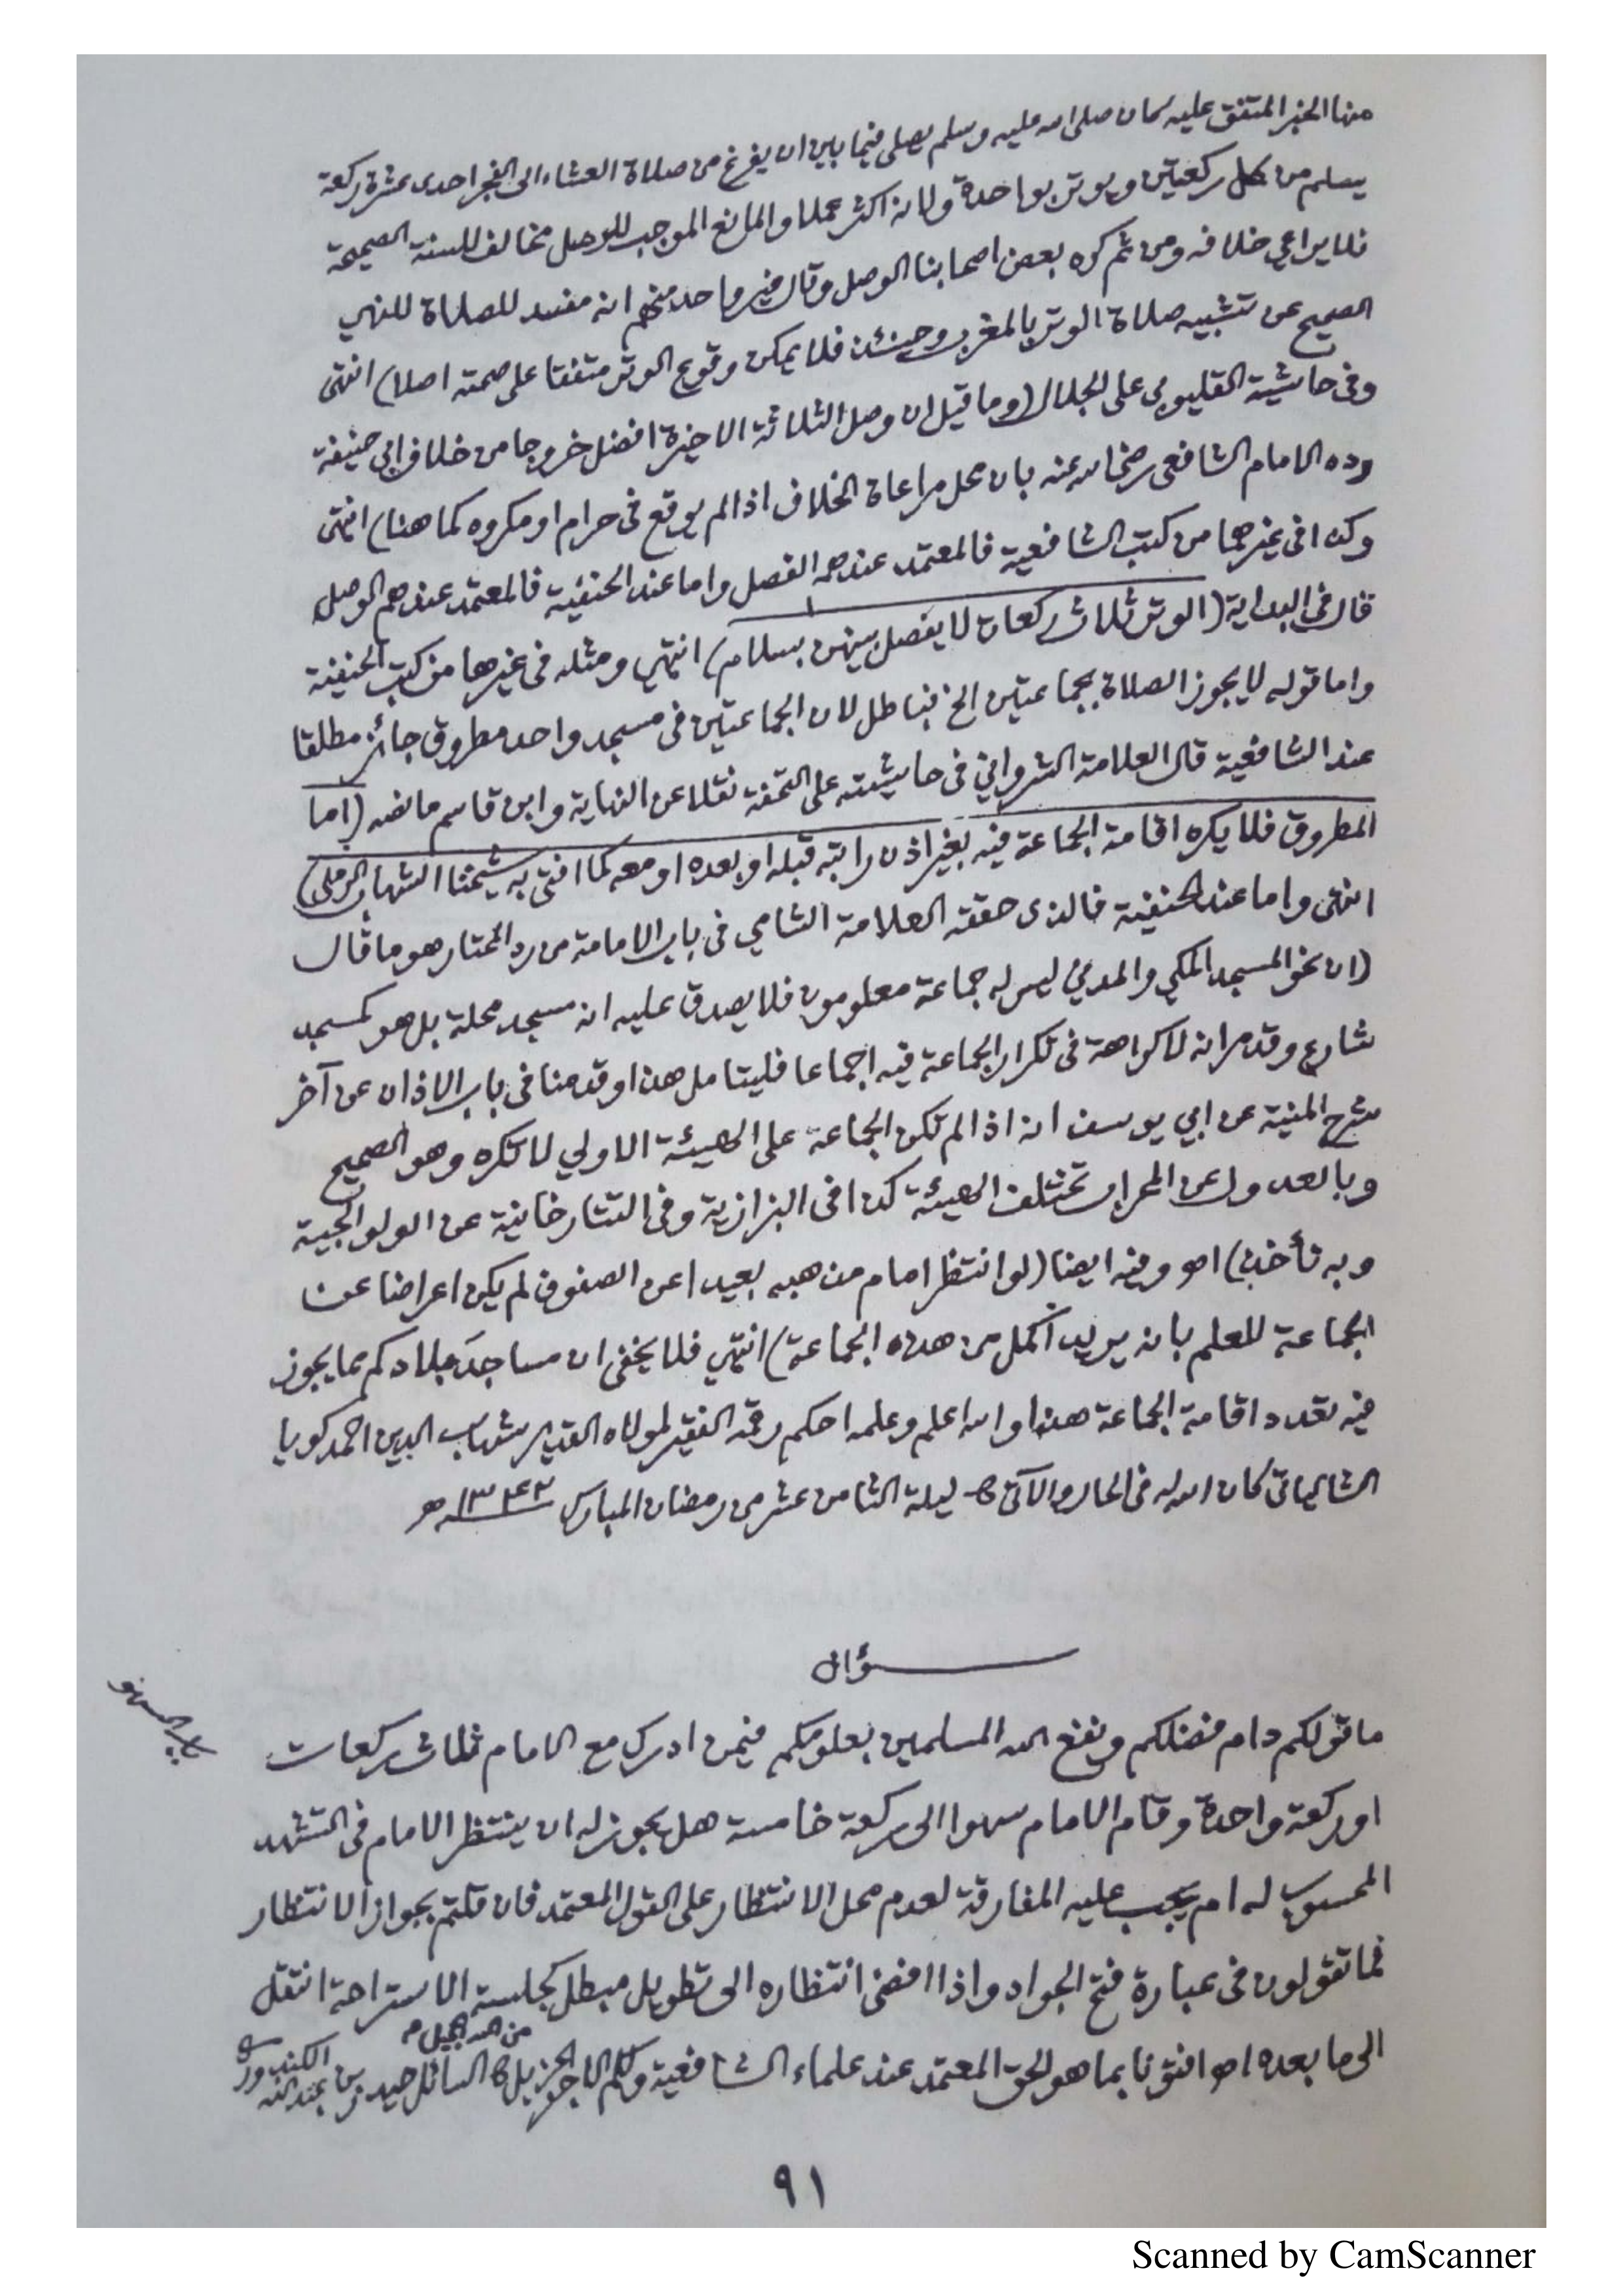 منها الخبر المتفق عليه كان صلى الله عليه وسلم يصلي فيما بين ان يفرغ من صلاة العشاء الى الفجر احدى عشرة ركعة
يسلم من كل ركعتين ويوتر بواحدة ولانه اكثر عملا والمانع الموجب للوصل مخالف للسنة الصحيحة
فلا يراعي خلافه ومن ثم كره بعض اصحابنا الوصل وقال غير واحد منهم انه مفسد للصلاة للنهي
الصحيح عن تشبيه صلاة الوتر بالمغرب وحينئذ فلا يمكن وقوع الوتر متفقا على صحته اصلا) انتهى
وفى حاشية القليوبي على الجلال (وما قيل ان وصل الثلاثة الاخيرة افضل خروجا من خلاف ابى حنيفة
رده الامام الشافعى رضى الله عنه بان محل مراعاة الخلاف اذا لم يوقع فى حرام او مكروه كما هنا) انتهى
وكذا فى غيرهما من كتب الشافعية فالمعتمد عندهم الفصل واما عند الحنفية فالمعتمد عندهم الوصل
قال فى البداية (الوتر ثلاث ركعات لا يفصل بينهن بسلام) انتهى ومثله فى غيرها من كتب الحنفية
واما قوله لا يجوز الصلاة بجماعتين الخ فباطل لان الجماعتين فى مسجد واحد مطروق جائز مطلقا
عند الشافعية قال العلامة الشرواني فى حاشيته على التحفة نقلا عن النهاية وابن قاسم ما نصه (اما
المطروق فلا يكره اقامة الجماعة فيه بغير اذن راتبه قبله او بعده او معه كما افتى به شيخنا الشهاب الرملي)
انتهى واما عند الحنفية فالذى حققه العلامة الشامي فى باب الامامة من رد المحتار هو ما قال
(ان نحو المسجد المكي والمدني ليس له جماعة معلومون فلا يصدق عليه انه مسجد محلة بل هو كمسجد
شارع وقد مر انه لا كراهة فى تكرار الجماعة فيه اجماعا فليتامل هذا وقدمنا فى باب الاذان عن آخر
شرح المنية عن ابي يوسف انه اذا لم تكن الجماعة على الهيئة الاولي لا تكره وهو الصحيح
وبالعدول عن المحراب تختلف الهيئة كذا فى البزازية وفى التتارخانية عن الولوالجية
وبه نأخذ) اهـ وفيه ايضا (لو انتظر امام مذهبه بعيدا عن الصفوف لم يكن اعراضا عن
الجماعة للعلم بانه يريد اكمل من هذه الجماعة) انتهي فلا يخفى ان مساجد بلادكم مما يجوز
فيه تعدد اقامة الجماعة هذا والله اعلم وعلمه احكم رقمه الفقير لمولاه القدير شهاب الدين احمد كويا
الشالياتى كان الله له فى الحال والآتى ليلة الثامن عشر من رمضان المبارك ١٣٤٢ هـ
سؤال
ما قولكم دام فضلكم ونفع الله المسلمين بعلومكم فيمن ادرك مع الامام ثلاث ركعات
او ركعة واحدة وقام الامام سهوا الى ركعة خامسة هل يجوز له ان ينتظر الامام فى التشهد
المحسوب له ام يجب عليه المفارقة لعدم محل الانتظار على القول المعتمد فان قلتم بجواز الانتظار
فما تقولون فى عبارة فتح الجواد واذا افضى انتظاره الى تطويل مبطل كجلسة الاستراحة انتقل
الى ما بعده اهـ افتونا بما هو الحق المعتمد عند علماء الشافعية ولكم الاجر الجزيل من الله الجليل السائل حيدر بن عبد الله
٩١
Scanned by CamScanner